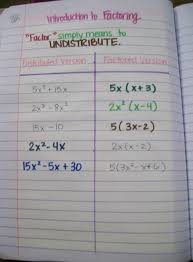 Introduction to Factoring
"Factor" simply means to
UNDISTRIBUTE.
Distributed Version Factored Version
5x² + 15x 5x (x + 3)
2x³ - 8x² 2x² (x - 4)
15x - 10 5 (3x - 2)
2x² - 4x 2x (x - 2)
15x² - 5x + 30 5(3x² - x + 6)